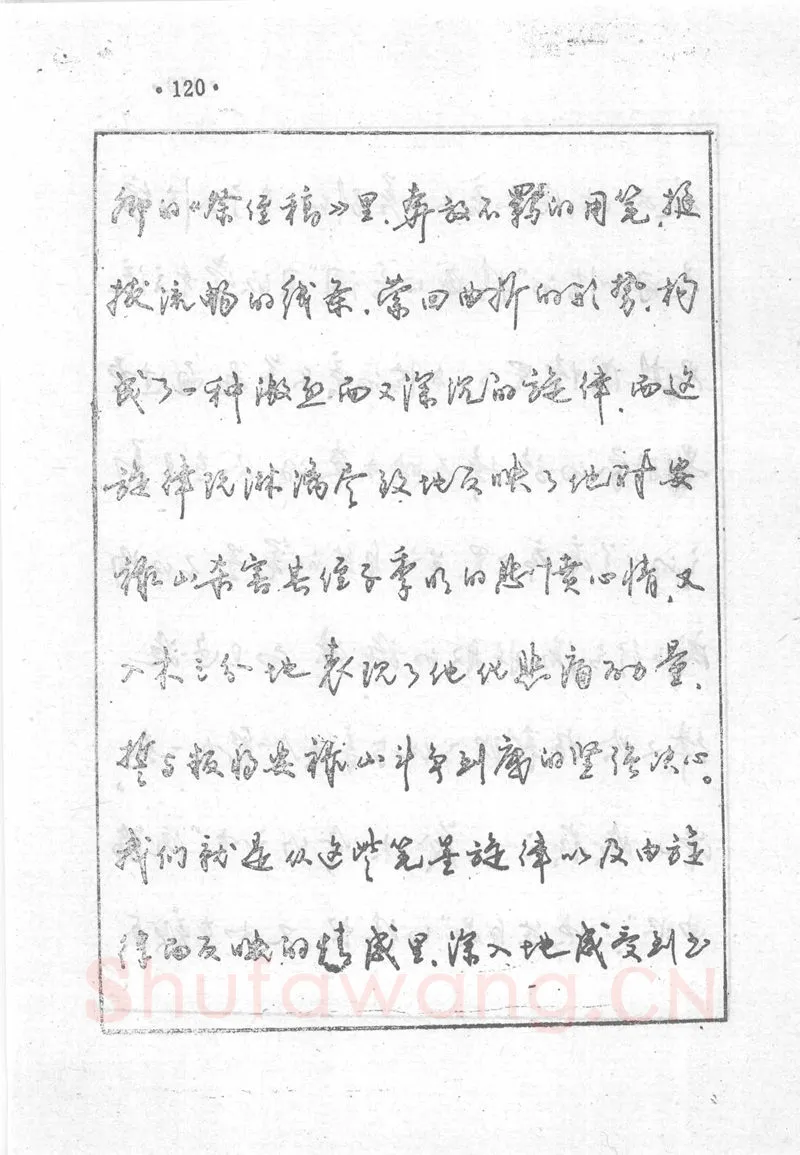 ·120·
卿的《祭侄稿》里,奔放不羁的用笔,挺
拔流畅的线条,萦回曲折的形势,构
成了一种激烈而又深沉的旋律,而这
旋律既淋漓尽致地反映了他对安
禄山杀害其侄子季明的悲愤心情,又
入木三分地表现了他化悲痛为力量,
誓与叛将安禄山斗争到底的坚强决心。
我们就是从这些笔墨旋律以及由旋
律而反映的情感里,深入地感受到书
Shufawang.CN